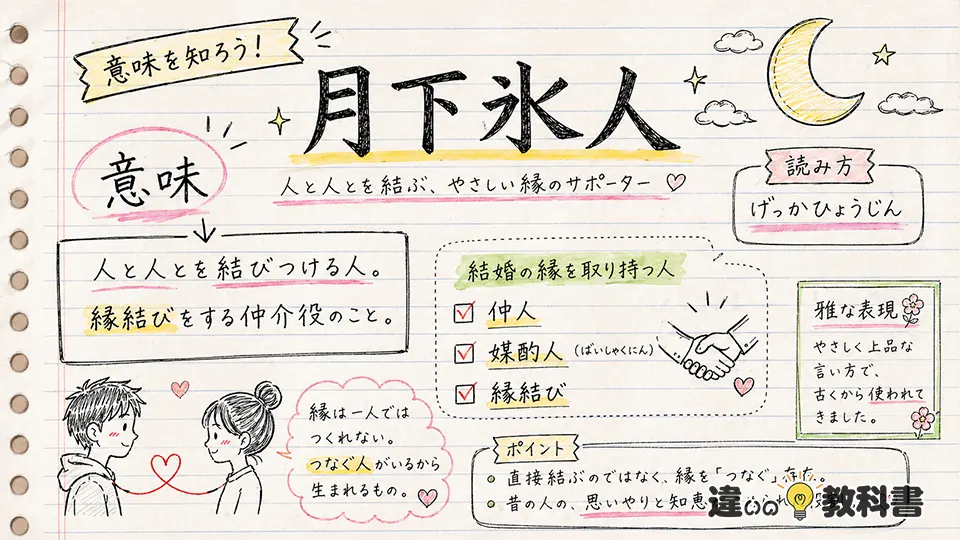 意味を知ろう!
月下氷人
人と人とを結ぶ、やさしい縁のサポーター
読み方
げっかひょうじん
意味
人と人とを結びつける人。
縁結びをする仲介役のこと。
結婚の縁を取り持つ人
仲人
媒酌人(ばいしゃくにん)
縁結び
雅な表現
やさしく上品な
言い方で、
古くから使われて
きました。
縁は一人では
つくれない。
つなぐ人がいるから
生まれるもの。
ポイント
直接結ぶのではなく、縁を「つなぐ」存在。
昔の人の、思いやりと知恵
違いの教科書